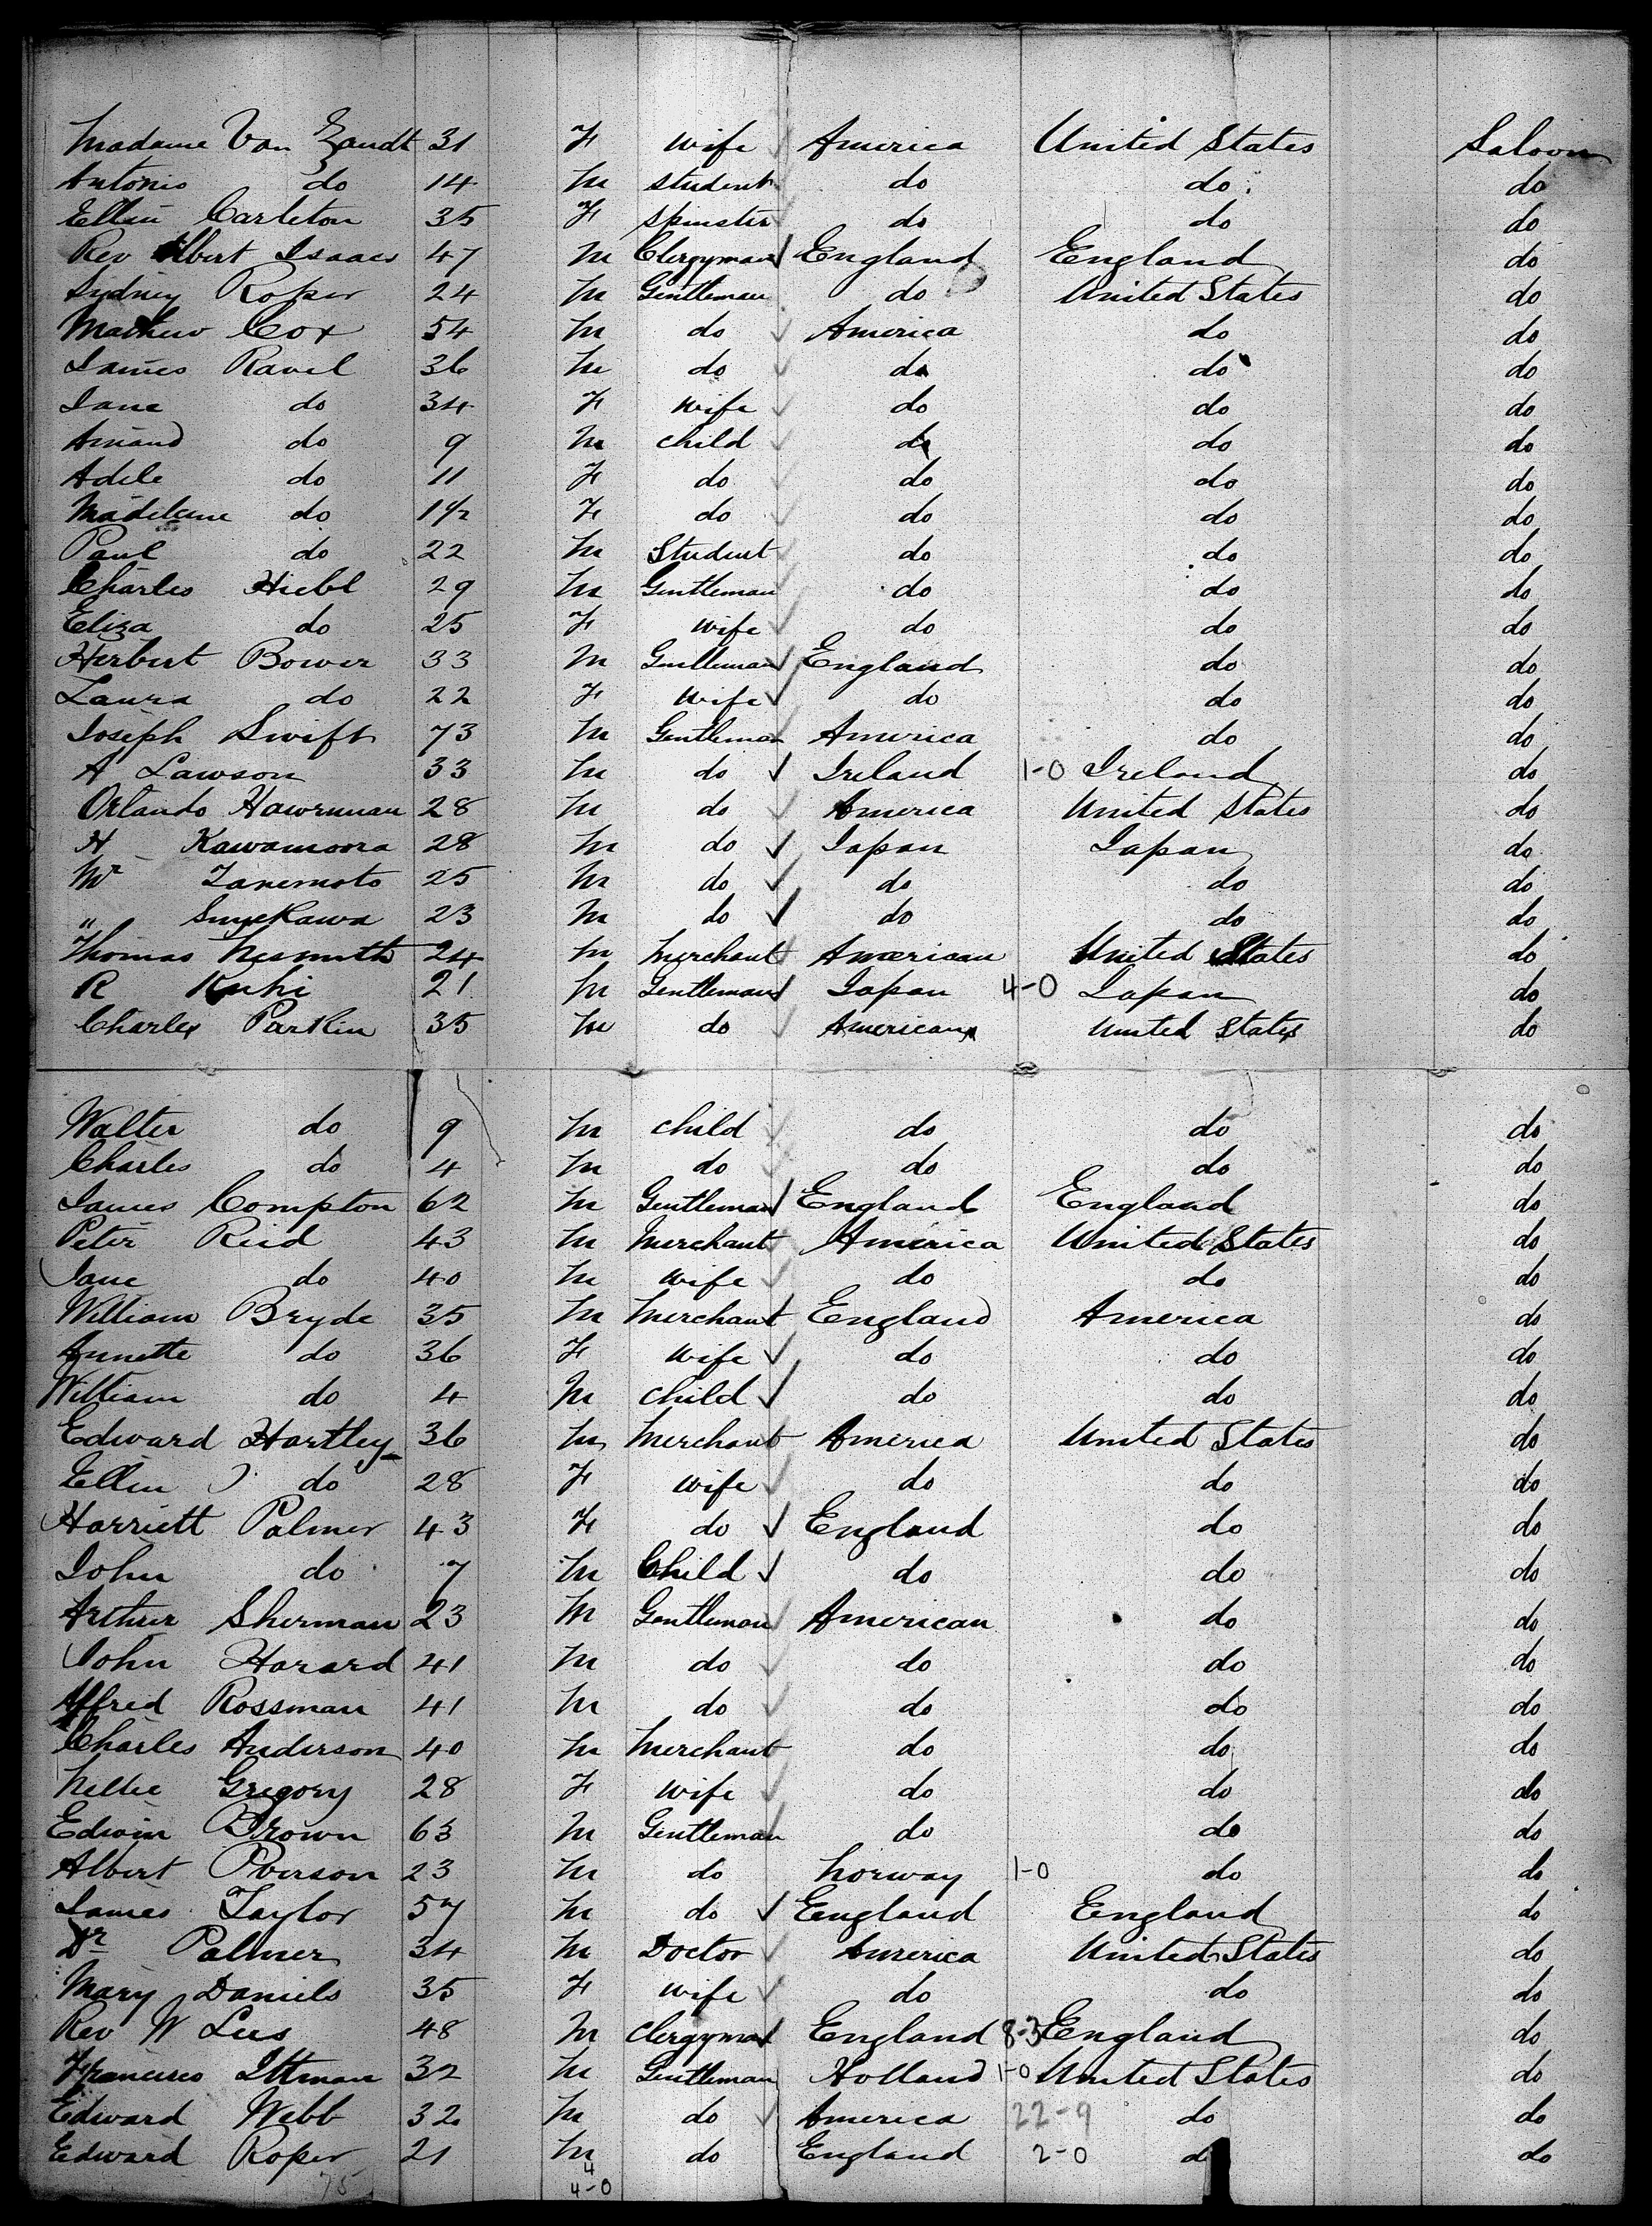 Madame Van Zandt 31 F Wife America United States Saloon
Antonio do 14 M Student do do do
Ellen Carleton 35 F Spinster do do do
Rev Albert Isaacs 47 M Clergyman England England do
Sydney Roper 24 M Gentleman do United States do
Mathew Cox 54 M do America do do
James Ravel 36 M do do do do
Jane do 34 F Wife do do do
Amand do 9 M child do do do
Adele do 11 F do do do do
Madeleine do 1½ F do do do do
Paul do 22 M Student do do do
Charles Hiebl 29 M Gentleman do do do
Eliza do 25 F Wife do do do
Herbert Bower 33 M Gentleman England do do
Laura do 22 F Wife do do do
Joseph Swift 73 M Gentleman America do do
A Lawson 33 M do Ireland 1-0 Ireland do
Orlando 28 M do America United States do
H Kawamoora 28 M do Japan Japan do
Mr Tanemoto 25 M do do do do
" 23 M do do do do
Thomas Nesmith 24 M Merchant American United States do
R Kuhi 21 M Gentleman Japan 4-0 Japan do
Charles Parkin 35 M do American United States do
Walter do 9 M child do do do
Charles do 4 M do do do do
James Compton 62 M Gentleman England England do
Peter Reid 43 M Merchant America United States do
Jane do 40 M Wife do do do
William Bryde 35 M Merchant England America do
Annette do 36 F Wife do do do
William do 4 M child do do do
Edward Hartley 36 M Merchant America United States do
Ellen do 28 F Wife do do do
Harriett Palmer 43 F do England do do
John do 7 M Child do do do
Arthur Sherman 23 M Gentleman American do do
John Harard 41 M do do do do
Alfred Rossman 41 M do do do do
Charles Anderson 40 M Merchant do do do
Nellie Gregory 28 F Wife do do do
Edwin Brown 63 M Gentleman do do do
Albert 23 M do Norway 1-0 do do
James Taylor 57 M do England England do
Dr Palmer 34 M Doctor America United States do
Mary Daniels 35 F Wife do do do
Rev W Lees 48 M Clergyman England 8-3 England do
Francisco Ittman 32 M Gentleman Holland 1-0 United States do
Edward Webb 32 M do America 22-9 do do
Edward Roper 21 M do England 2-0 do do
75 4
4-0